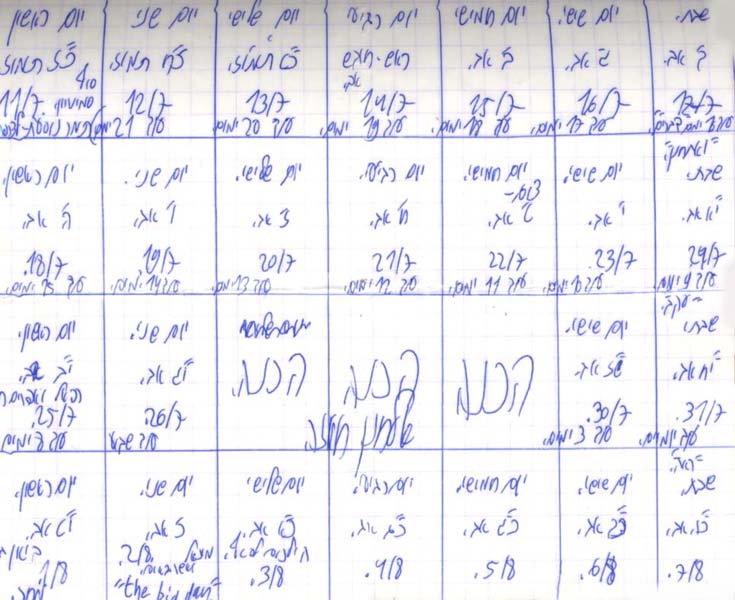 יום ראשון
כ"ז תמוז
11/7
יום שני
כ"ח תמוז
12/7
עוד 21 ימים.
יום שלישי
כ"ט תמוז.
13/7
עוד 20 ימים.
יום רביעי
ראש-חודש
אב.
14/7
עוד 19 ימים.
יום חמישי
ב' אב.
15/7
עוד 18 ימים.
יום שישי
ג' אב.
16/7
עוד 17 ימים.
שבת.
ד' אב.
17/7
יום ראשון
ה' אב.
18/7.
עוד 15 ימים.
יום שני.
ו' אב.
19/7
עוד 14 ימים.
יום שלישי.
ז' אב.
20/7
עוד 13 ימים.
יום רביעי.
ח' אב.
21/7
עוד 12 ימים.
יום חמישי
צום-
ט' אב.
22/7
עוד 11 ימים.
יום שישי.
י' אב.
23/7.
עוד 10 ימים.
"ואתחנן"
שבת.
י"א אב.
24/7
עוד 9 ימים.
יום ראשון.
י"ב אב.
25/7
עוד 8 ימים
יום שני.
י"ג אב.
26/7
עוד שבוע
הכנה.
הכנה.
הכנה
יום שישי
י"ז אב.
30/7.
עוד 3 ימים.
"עקב"
שבת.
י"ח אב.
31/7.
עוד יומיים.
יום ראשון.
י"ט אב.
1/8
יום שני.
כ' אב.
2/8.
"the big day"
יום שלישי
כ"א אב.
3/8.
יום רביעי.
כ"ב אב.
4/8.
יום חמישי.
כ"ג אב.
5/8.
יום שישי.
כ"ד אב.
6/8.
"ראה"
שבת.
כ"ה אב.
7/8.